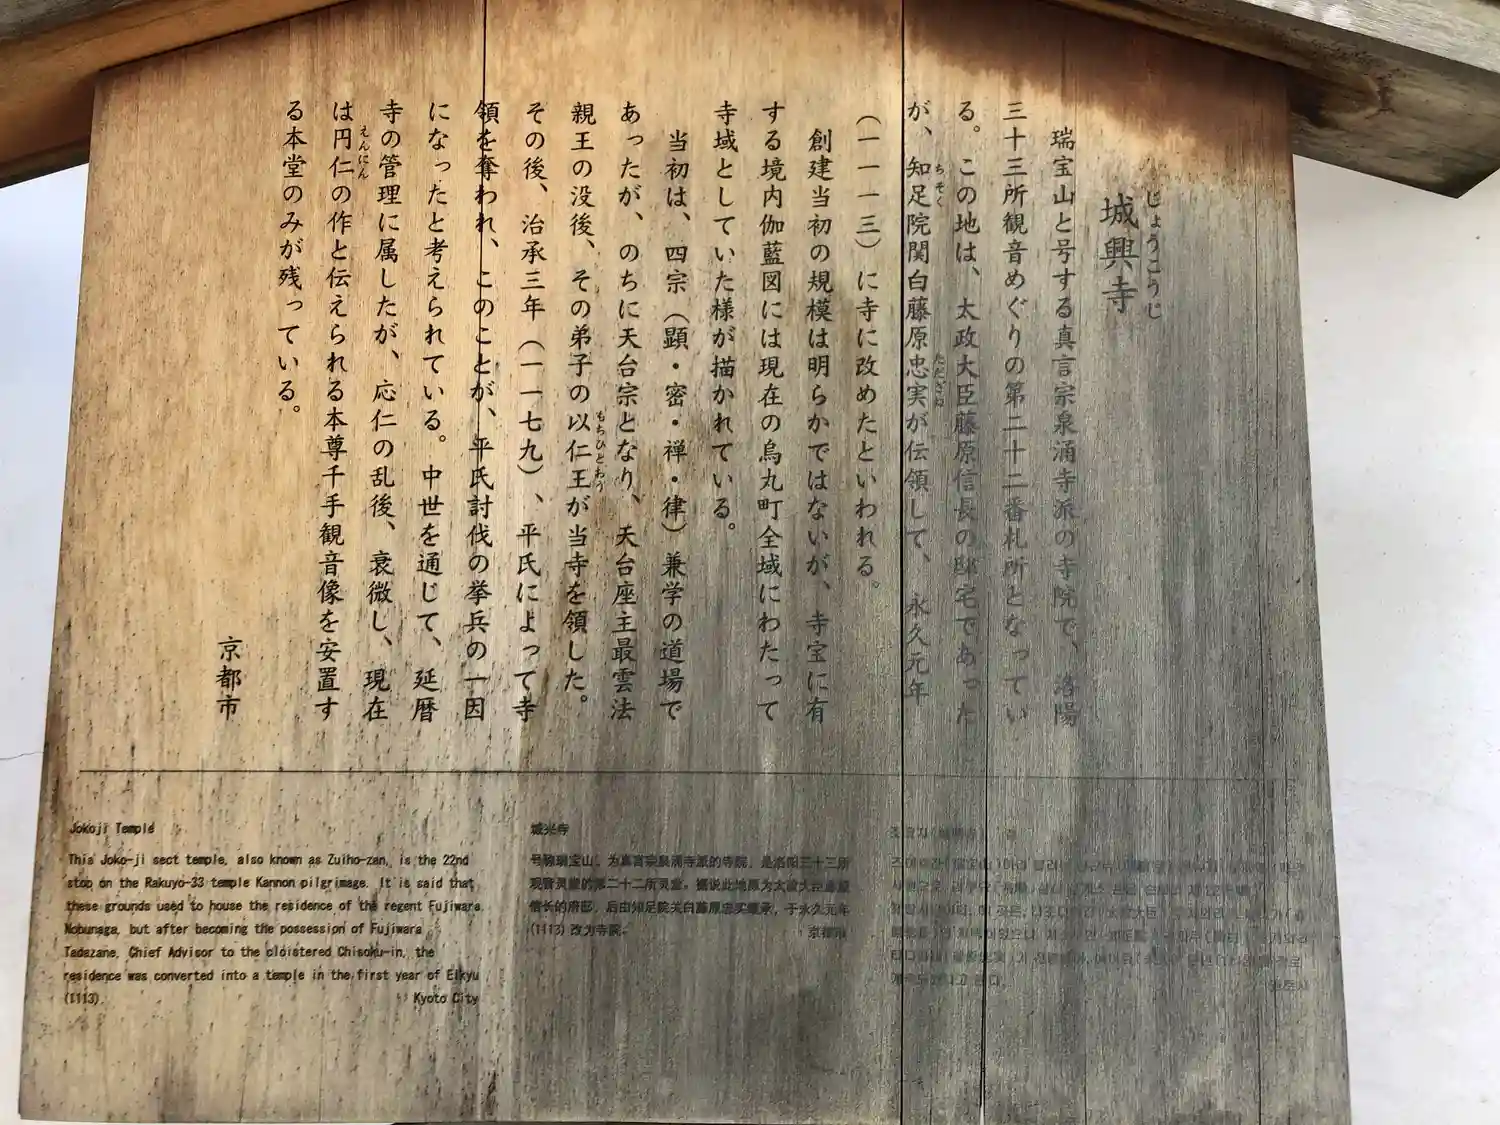 城興寺
じょうこうじ
瑞宝山と号する真言宗泉涌寺派の寺院で、洛陽
三十三所観音めぐりの第二十二番札所となってい
る。この地は、太政大臣藤原信長の邸宅であった
が、知足院関白藤原忠実が伝領して、永久元年
ちそく
ただざね
(一一一三)に寺に改めたといわれる。
創建当初の規模は明らかではないが、寺宝に有
する境内伽藍図には現在の烏丸町全域にわたって
寺域としていた様が描かれている。
当初は、四宗(顕・密・禅・律)兼学の道場で
あったが、のちに天台宗となり、天台座主最雲法
親王の没後、その弟子の以仁王が当寺を領した。
もちひとおう
その後、治承三年(一一七九)、平氏によって寺
領を奪われ、このことが、平氏討伐の挙兵の一因
になったと考えられている。中世を通じて、延暦
寺の管理に属したが、応仁の乱後、衰微し、現在
は円仁の作と伝えられる本尊千手観音像を安置す
えんにん
る本堂のみが残っている。
京都市
Jokoji Temple
This Joko-ji sect temple, also known as Zuiho-zan, is the 22nd
stop on the Rakuyo-33 temple Kannon pilgrimage. It is said that
these grounds used to house the residence of the regent Fujiwara
Nobunaga, but after becoming the possession of Fujiwara
Tadazane, Chief Advisor to the cloistered Chisoku-in, the
residence was converted into a temple in the first year of Eikyu
(1113).
Kyoto City
城兴寺
号称瑞宝山，为真言宗泉涌寺派的寺院，是洛阳三十三所
观音灵堂的第二十二所灵堂。据说此地原为太政大臣藤原
信长的府邸，后由知足院关白藤原忠实继承，于永久元年
(1113) 改为寺院。
京都市